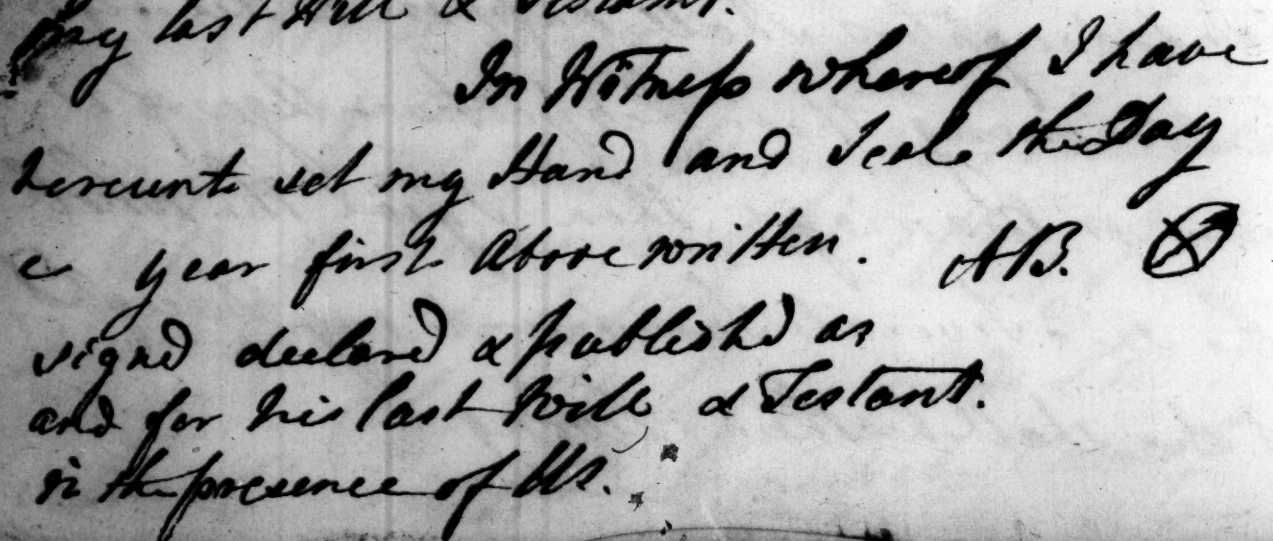 my last Will & Testamt.
In Witness whereof I have
hereunto set my Hand and Seale the Day
& year first Above written. AB.
signd declard & publishd as
and for his last Will & Testamt.
in the presence of Us.